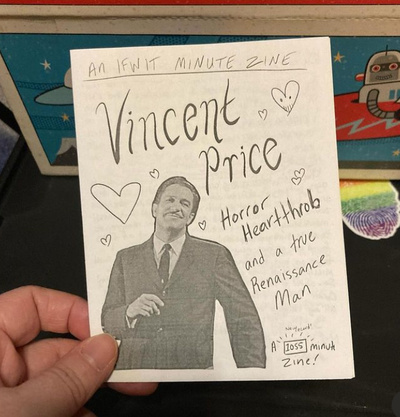 AN IFWIT MINUTE ZINE
Vincent
Price
Horror
Heartthrob
and a true
Renaissance
Man
A 1055 minute
zine!